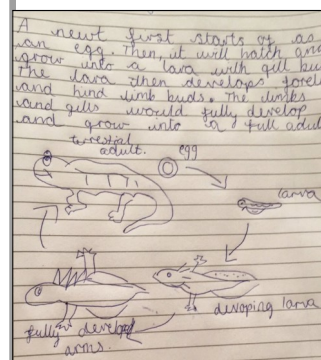 A newt first starts of as
an egg. Then, it will hatch and
grow into a lava with gill bu
The lava then develops forel
and hind limb buds. The limbs
and gills would fully develop
and grow into a full adul
terrestial
adult.
egg
larva
devoping larva
fully develop
arms.